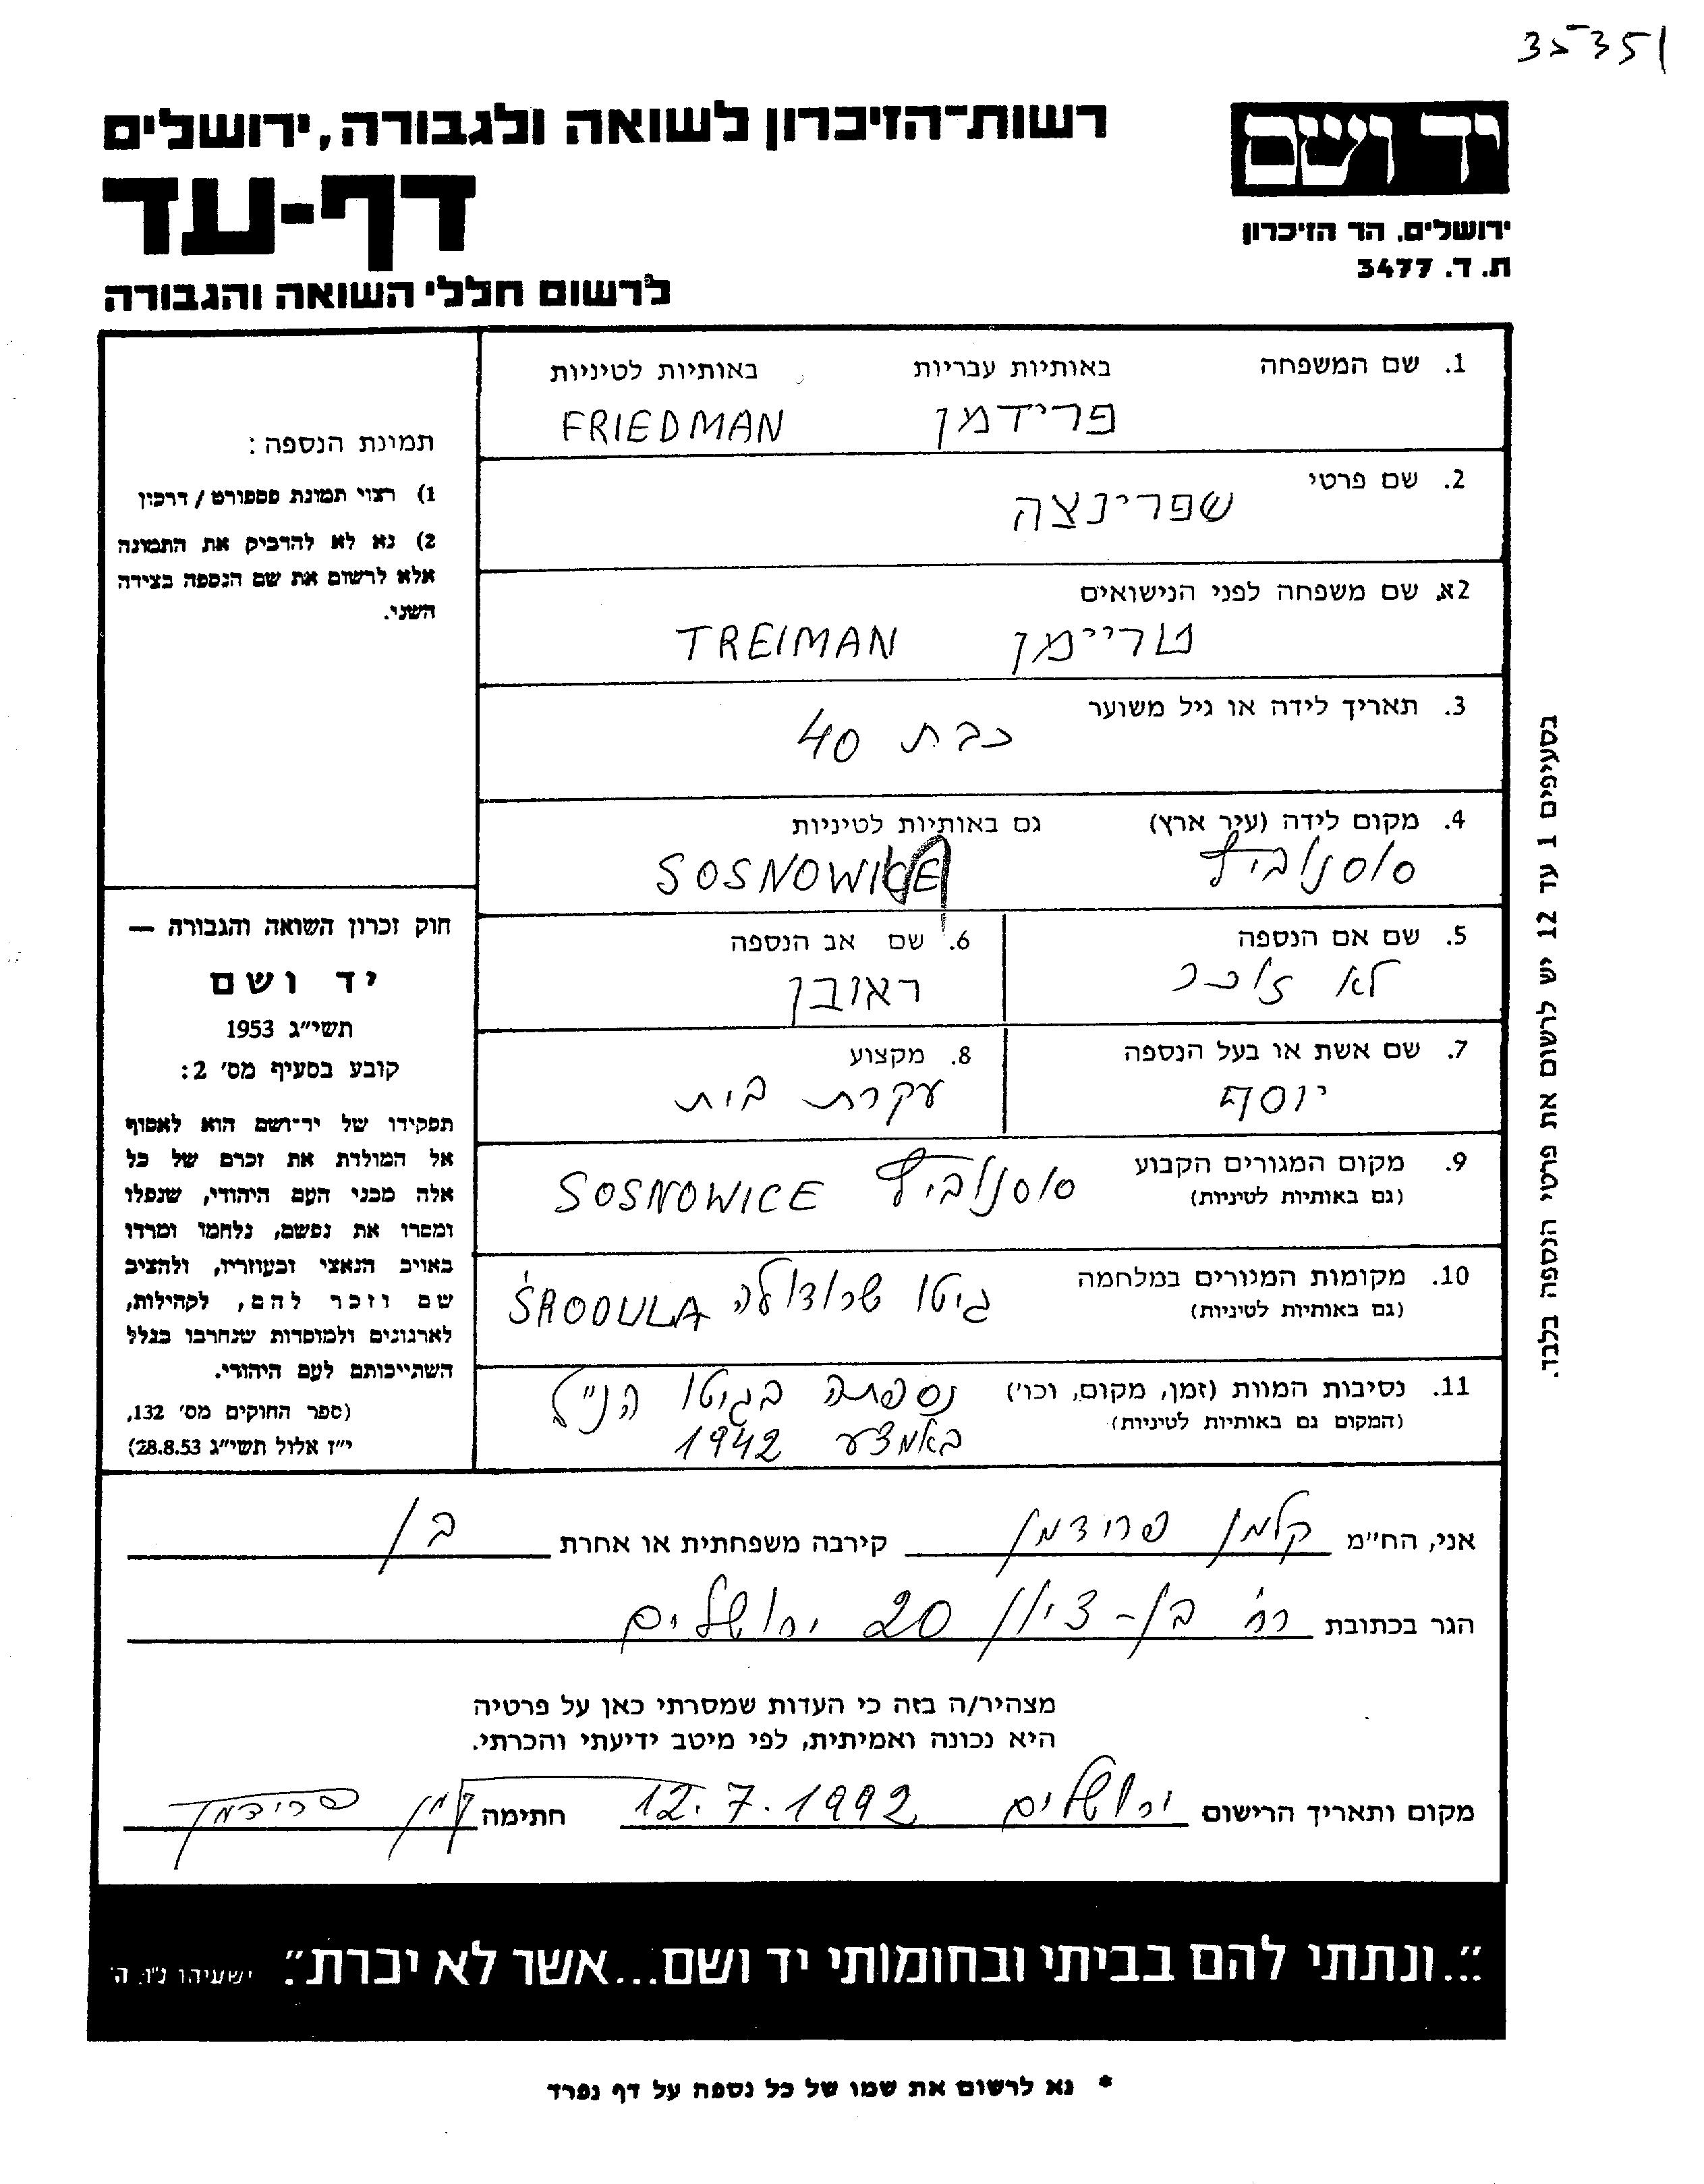 35351
רשות-הזיכרון לשואה ולגבורה, ירושלים
דף-עד
לרשום חללי השואה והגבורה
יד ושם
ירושלים, הר הזיכרון
ת. ד. 3477
1. שם המשפחה באותיות עבריות באותיות לטיניות
פרידמן FRIEDMAN
2. שם פרטי
שפרינצה
2א. שם משפחה לפני הנישואים
טריימן TREIMAN
3. תאריך לידה או גיל משוער
כבת 40
4. מקום לידה (עיר ארץ) גם באותיות לטיניות
סוסנוביץ SOSNOWICE
5. שם אם הנספה
לא זוכר
6. שם אב הנספה
ראובן
7. שם אשת או בעל הנספה
יוסף
8. מקצוע
עקרת בית
9. מקום המגורים הקבוע
(גם באותיות לטיניות)
סוסנוביץ SOSNOWICE
10. מקומות המגורים במלחמה
(גם באותיות לטיניות)
גיטו שרודולה ŚRODULA
11. נסיבות המוות (זמן, מקום, וכו')
(המקום גם באותיות לטיניות)
נספתה בגיטו הנ"ל
באמצע 1942
תמונת הנספה:
1) רצוי תמונת פספורט / דרכון
2) נא לא להדביק את התמונה
אלא לרשום את שם הנספה בצידה
השני.
חוק זכרון השואה והגבורה —
יד ושם
תשי"ג 1953
קובע בסעיף מס' 2:
תפקידו של יד-ושם הוא לאסוף
אל המולדת את זכרם של כל
אלה מבני העם היהודי, שנפלו
ומסרו את נפשם, נלחמו ומרדו
באויב הנאצי ובעוזריו, ולהציב
שם וזכר להם, לקהילות,
לארגונים ולמוסדות שנחרבו בגלל
השתייכותם לעם היהודי.
(ספר החוקים מס' 132,
י"ז אלול תשי"ג 28.8.53)
בסעיפים 1 עד 12 יש לרשום את פרטי הנספה בלבד.
אני, הח"מ קלמן פרידמן קירבה משפחתית או אחרת בן
הגר בכתובת רח' בן-ציון 20 ירושלים
מצהיר/ה בזה כי העדות שמסרתי כאן על פרטיה
היא נכונה ואמיתית, לפי מיטב ידיעתי והכרתי.
מקום ותאריך הרישום ירושלים 12.7.1992 חתימה קלמן פרידמן
"...ונתתי להם בביתי ובחומותי יד ושם...אשר לא יכרת". ישעיהו נ"ו, ה'
* נא לרשום את שמו של כל נספה על דף נפרד